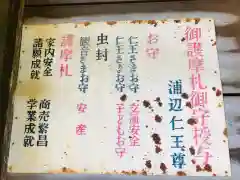 御護摩札御守授与
浦辺仁王尊
お守
仁王さまお守 交通安全
仁王さまお守 子どもお守
観音さまお守 安産
虫封
護摩札
家内安全 商売繁昌
諸願成就 学業成就